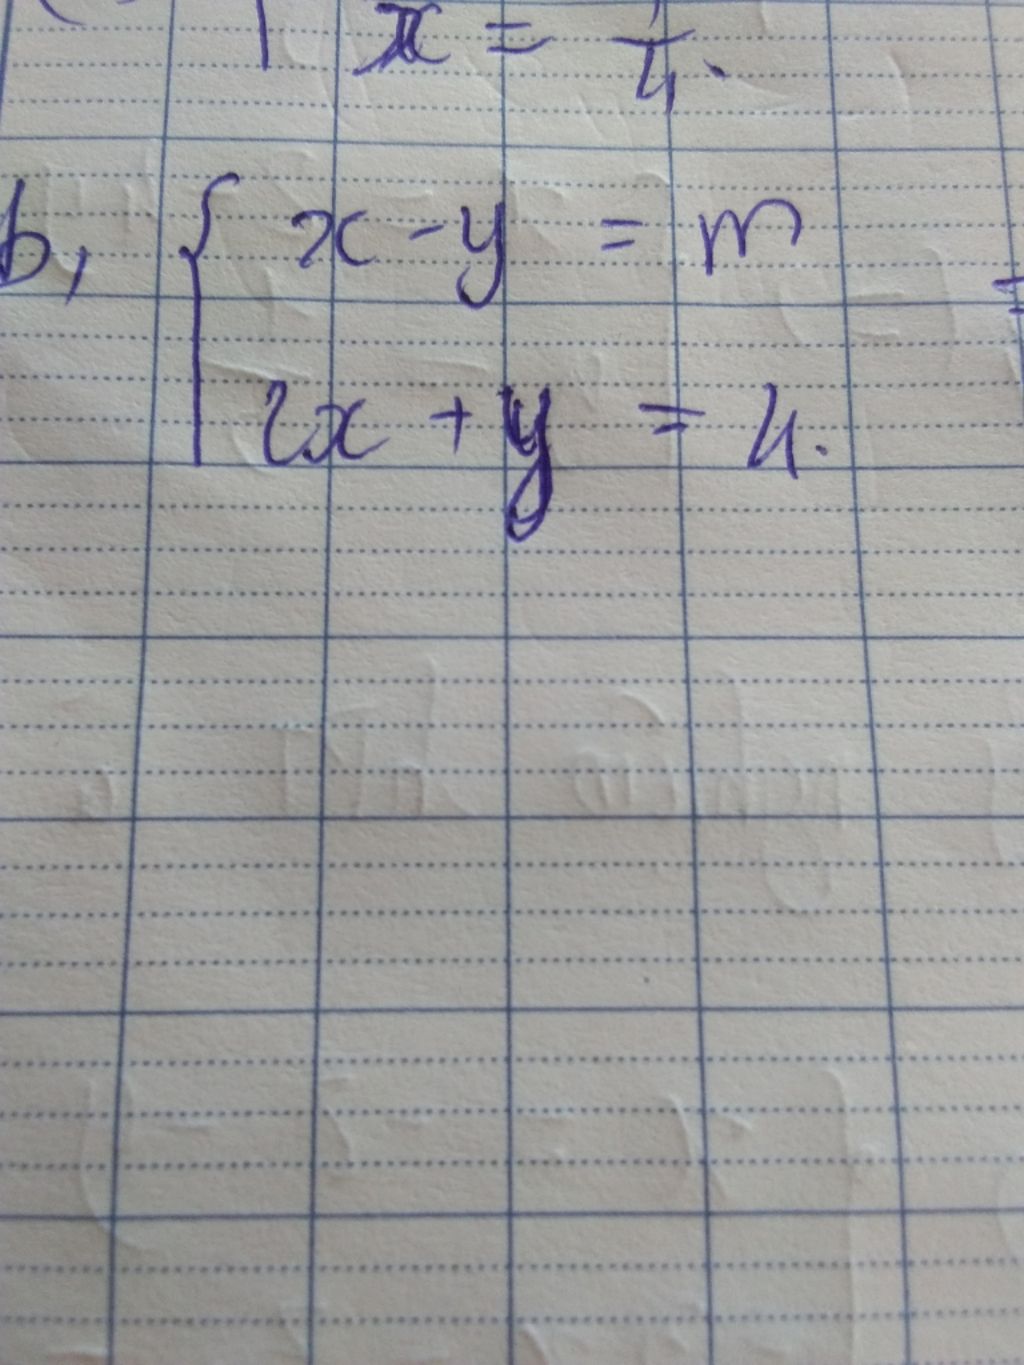 x = 1/4.
b, { x - y = m
2x + y = 4.